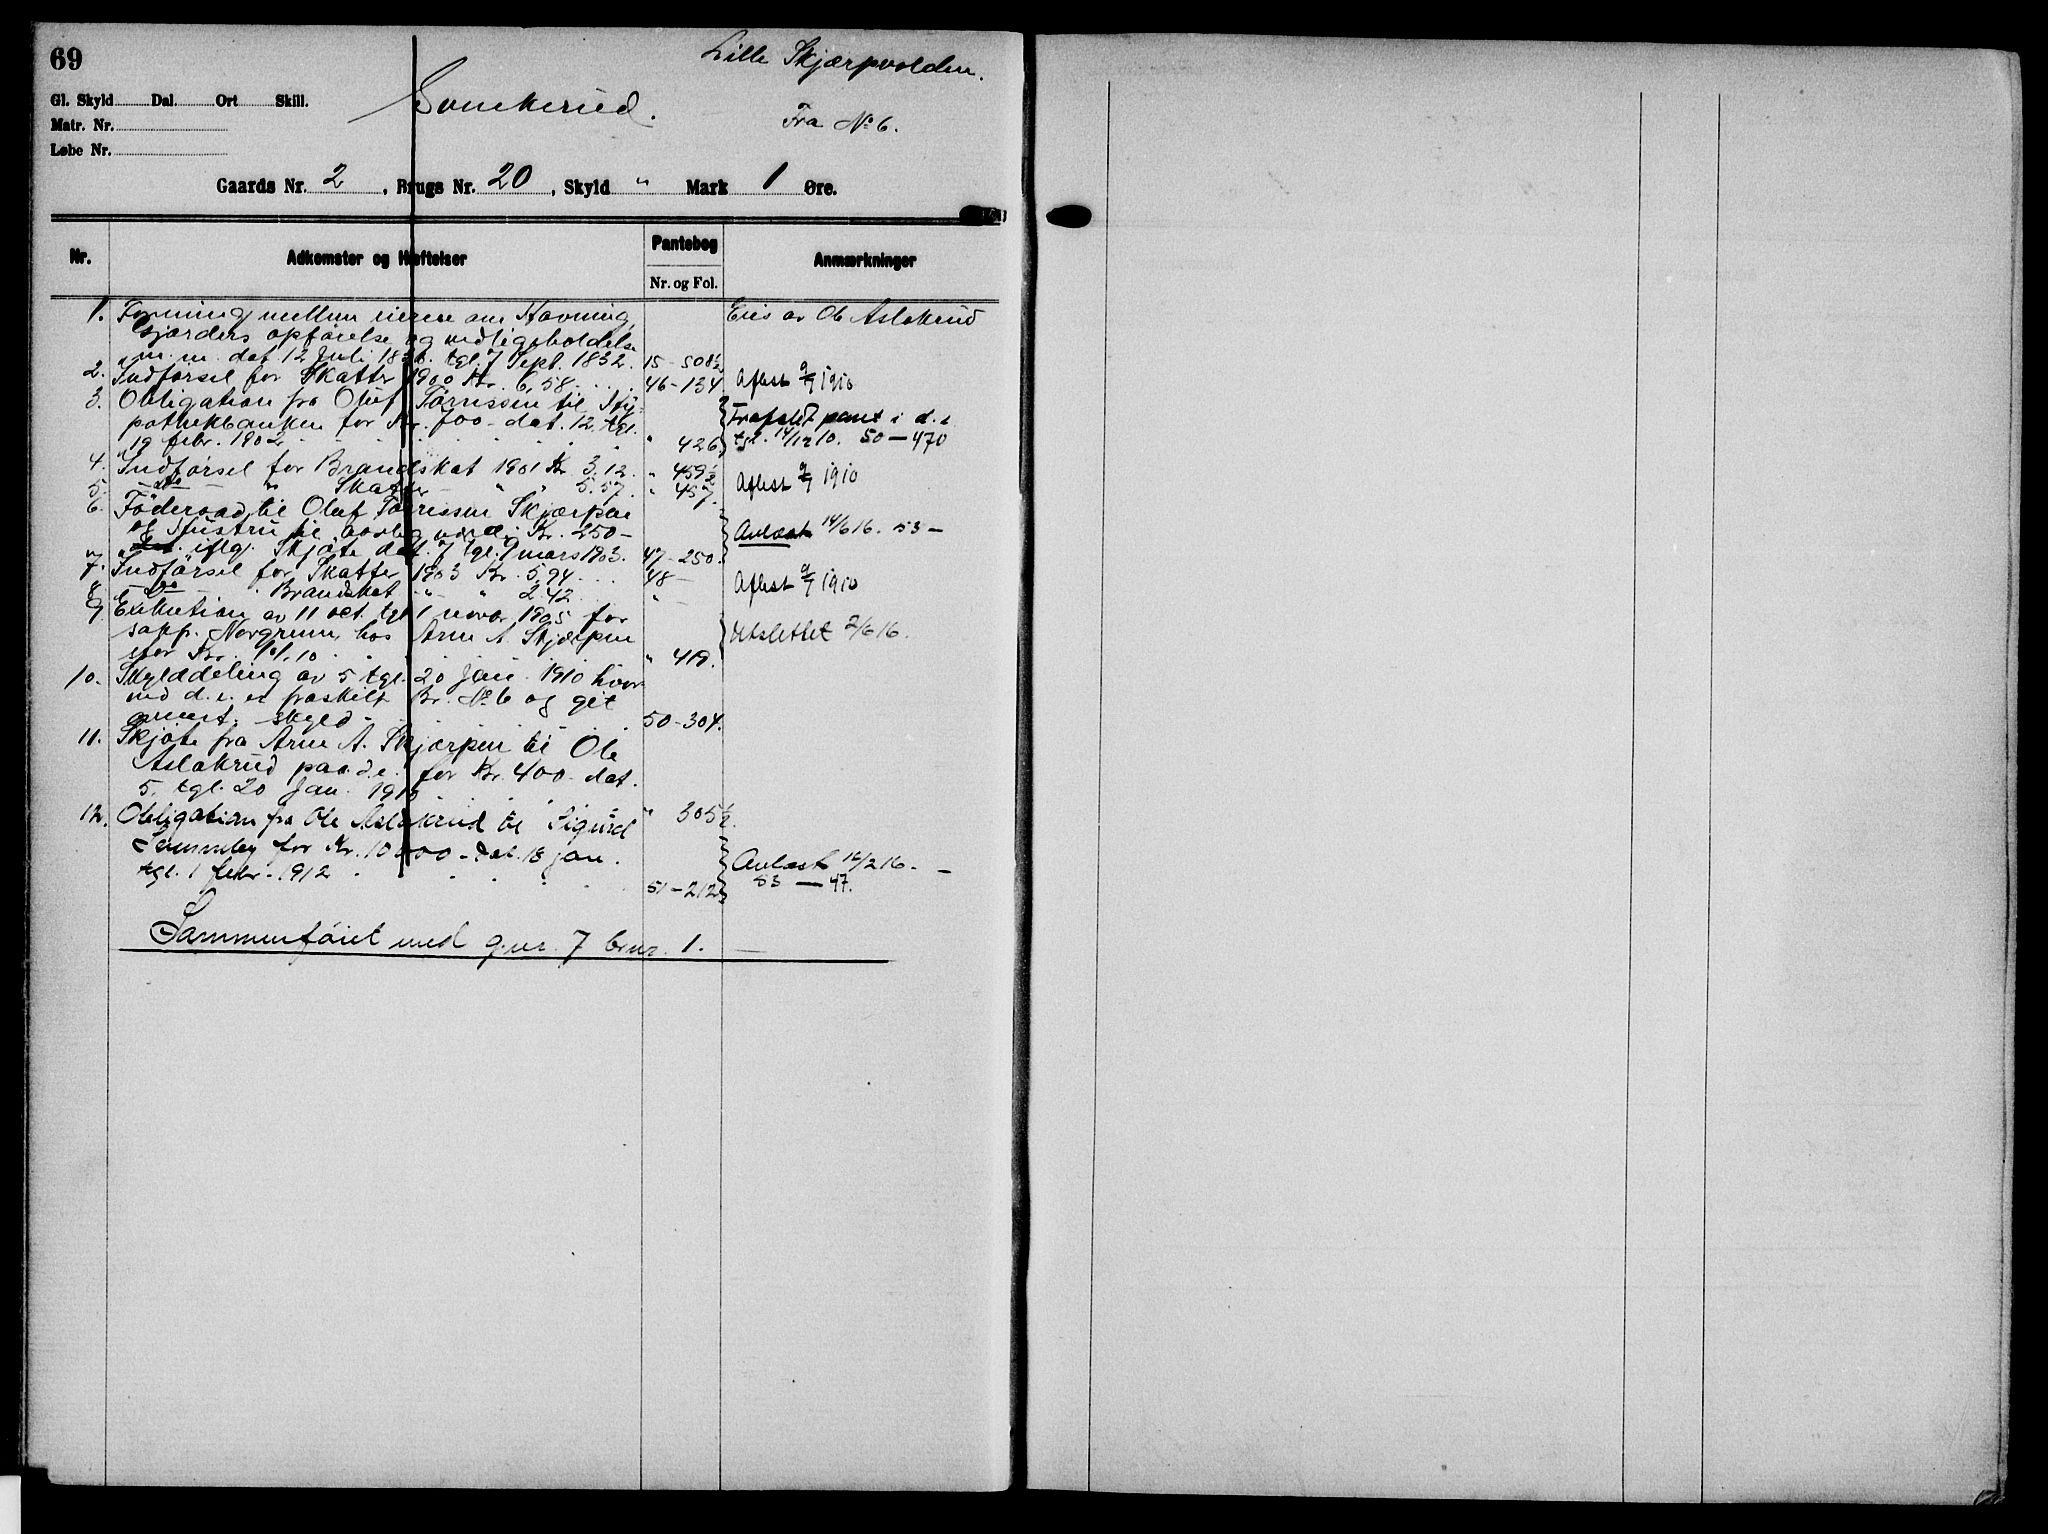 69
Lille Skjærpvolden.
Gl. Skyld Dal. Ort Skill.
Sonekerud.
Fra No 6.
Matr. Nr.
Løbe Nr.
Gaards Nr. 2, Brugs Nr. 20, Skyld " Mark 1 Øre.
Nr. Adkomster og Hæftelser Pantebog Anmærkninger
Nr. og Fol.
1. Forening mellem eierne om Havning, Eies av Ole Aslakrud
Gjærders opførelse og vedligeholdelse
m. m. dat 12 Juli tgl. 7 Sept. 1832. 15-508½
2. Indførsel for Skatter 1900 Kr. 6,58 46-134 Aflest 9/7 1910
3. Obligation fra Oluf Tørrissen til Hy- Frafaldt pant i d. e.
pothekbanken for Kr. 700- dat. 12. tgl. tgl. 14/12 10. 50-470
19 febr. 1902 " 426
4. Indførsel for Brandskat 1901 Kr 3.12. " 459½
5. do " Skatter " " 5.57. " 457. Aflest 9/7 1910
6. Føderaad til Oluf Tørrissen Skjærpen
og Hustru til aarlig værdi Kr. 250- Avlæst 14/6 16. 53-
iflg. Skjøte dat. 7 tgl. 9 mars 1903. 47-250.
7. Indførsel for Skatter 1903 Kr. 5.94 48- Aflest 9/7 1910
8. Do Brandskat " " 2.42 " -
9. Exekution av 11 oct. tgl 1 novbr 1905 for
sapf. Norgrenn hos Arne A Skjærpen Utslettet 2/6 16.
stor Kr. " 419.
10. Skylddeling av 5 tgl. 20 Jan. 1910 hvor
ved d. e. er fraskilt Br. No 6 og git
anmert. skyld 50-304.
11. Skjøte fra Arne A. Skjærpen til Ole
Aslakrud paa d.e. for Kr. 400- dat.
5. tgl. 20 Jan. 1910 " 305½.
12. Obligation fra Ole Aslakrud til Sigurd
for Kr. 10000- dat. 18 jan. Avlæst 16/2 16. -
tgl. 1 febr. 1912 51-212 53-47.
Sammenføiet med gnr. 7 brnr. 1.